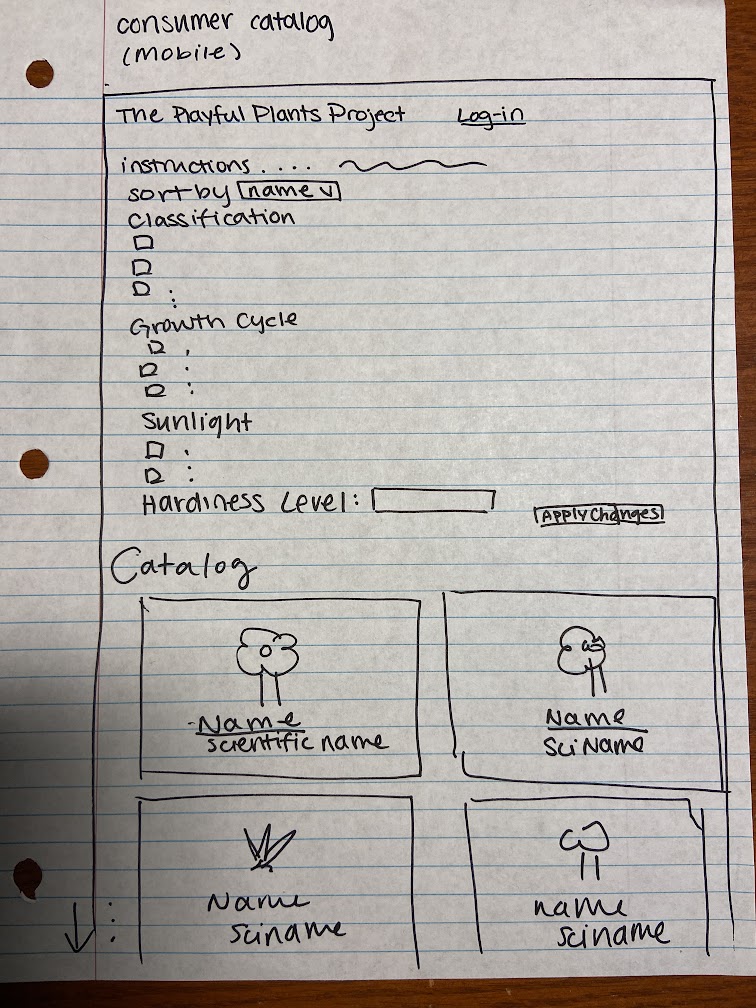 consumer catalog
(mobile)
The Playful Plants Project Log-in
instructions . . . .
sort by name v
Classification
Growth Cycle
Sunlight
Hardiness Level:
Apply Changes
Catalog
Name
scientific name
Name
Sci Name
Name
Sciname
name
sciname